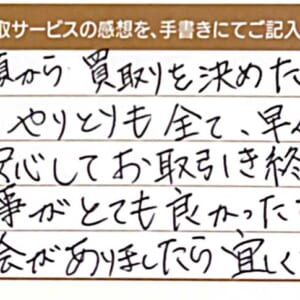 取サービスの感想を、手書きにてご記入
から 買取りを決めた
やりとりも全て、早
心してお取引き終
事がとても良かった
会がありましたら宜しく